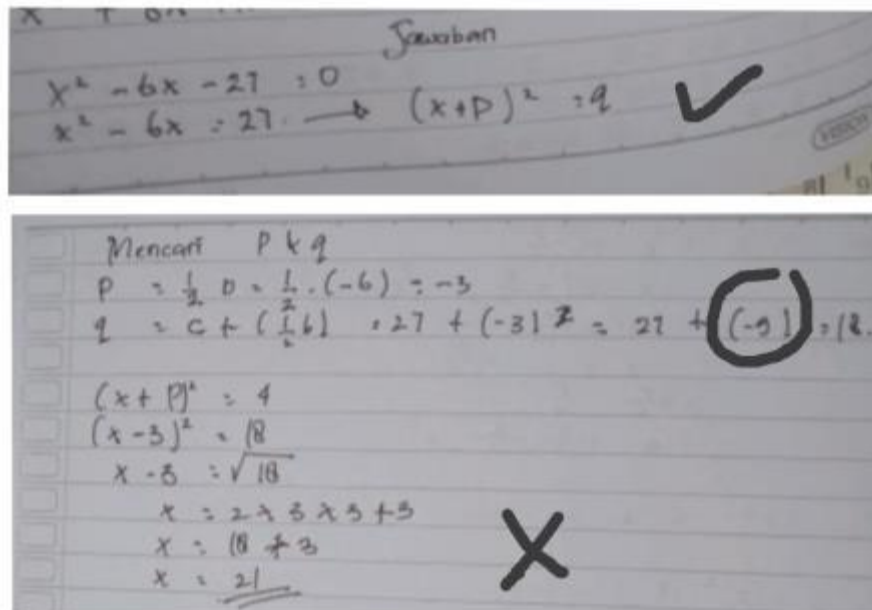 Jawaban
x² - 6x - 27 = 0
x² - 6x = 27 → (x+p)² = q
Mencari p & q
p = 1/2 b = 1/2 . (-6) = -3
q = c + (1/2 b) = 27 + (-3)² = 27 + (-9) = 18.
(x + p)² = q
(x - 3)² = 18
x - 3 = √18
x = 2 x 3 x 3 + 3
x = 18 + 3
x = 21